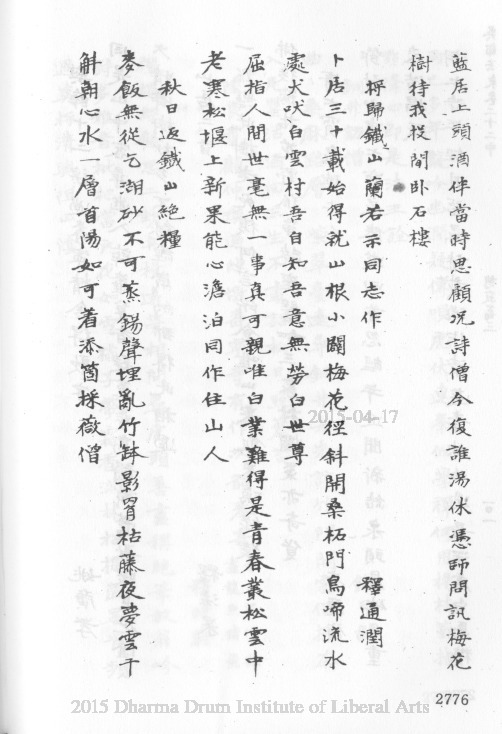 藍居上頭酒伴當時思顧況詩僧今復誰湯休憑師問訊梅花
樹待我投閒臥石樓
歸鐵山蘭若示同志作
釋通潤
卜居三載始得就山根小闢梅花徑斜開桑柘門鳥啼流水
處犬吠白雲村吾自如吾意無勞白世尊
屈指人間世毫無一事真可親唯白業難得是青春叢松雲中
老寒松堰上新果能心澹泊同作住山人
秋日返鐵山絕糧
麥飯無從乞湖砂不可蒸錫聲埋亂竹鉢影罥枯藤夜夢雲千
斛朝心水一層首陽如可着添箇採薇僧
2015-04-17
2776
2015 Dharma Drum Institute of Liberal Arts